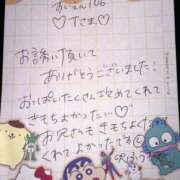 あいえん106
♡Tさま♡
お誘い頂いて
ありがとうございました
おっぱいたくさん攻めてくれて
きもちよかったい♡
お尻さんもきもちよく
くれてよかったです☺